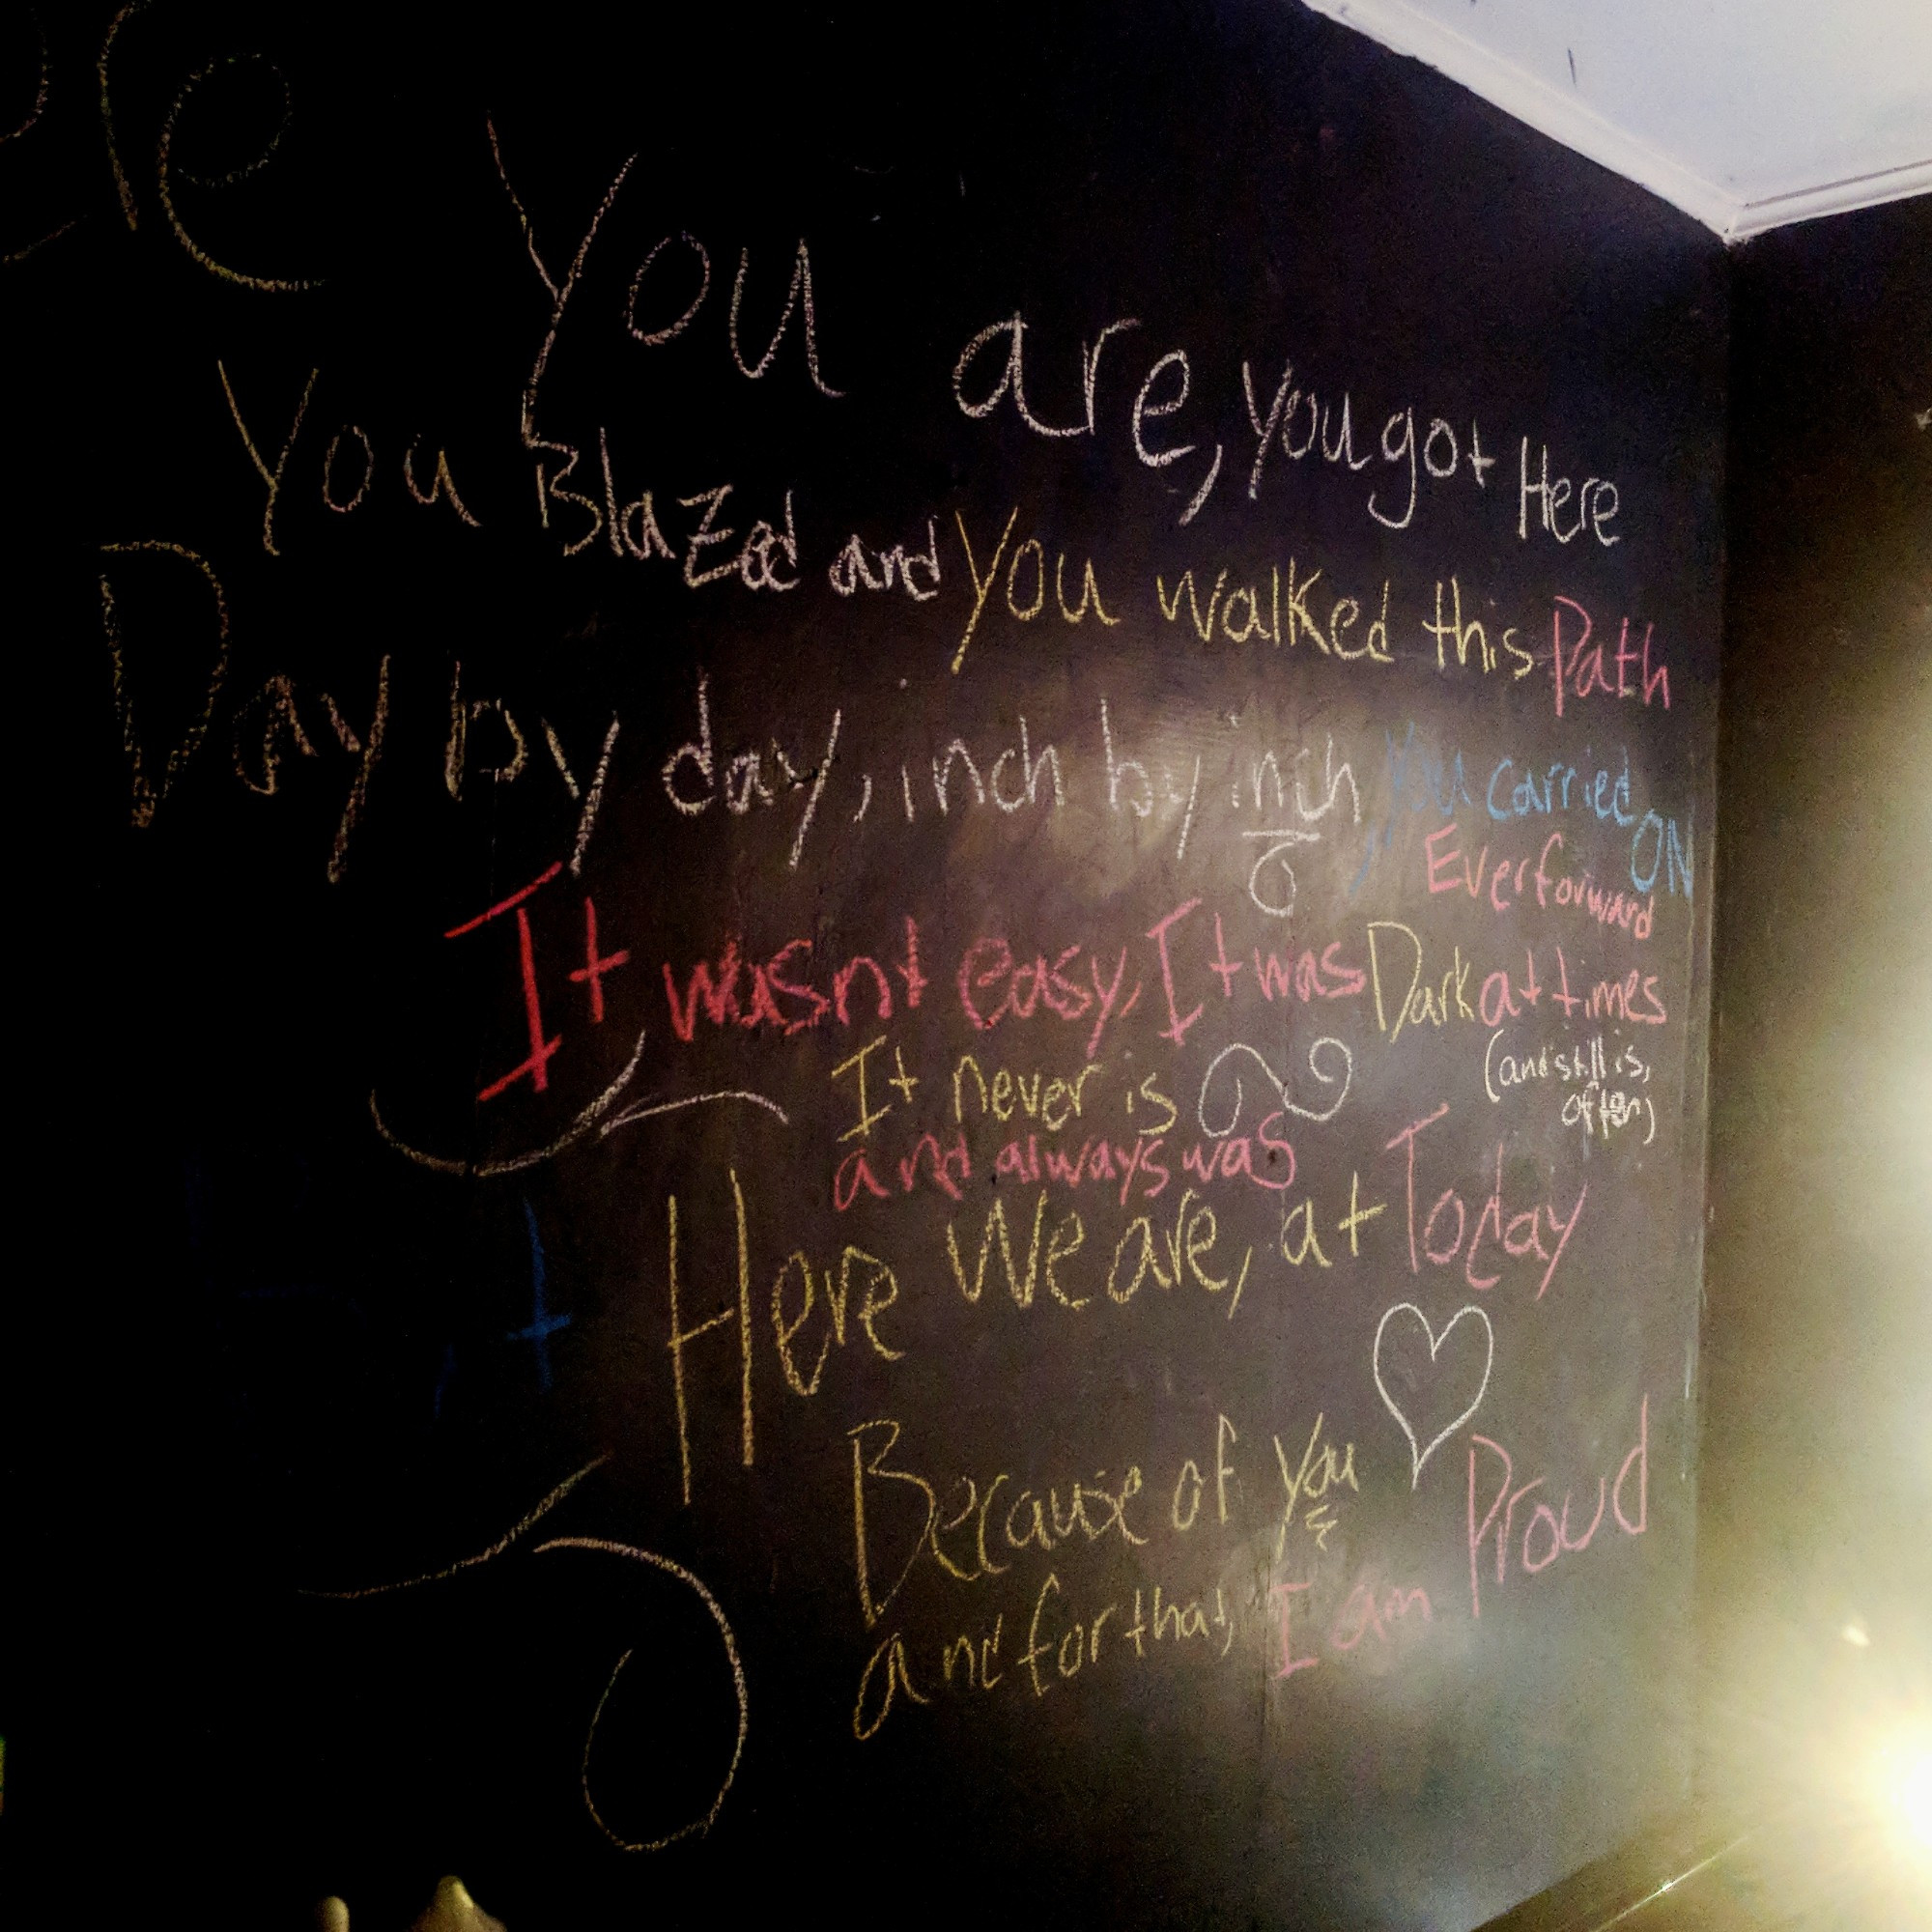 re You are, You got Here
You Blazed and You walked this Path
Day by day, inch by inch, you carried ON
Ever forward
It wasnt easy, It was Dark at times
(and still is,
often)
It never is
and always was
Here We are, at Today
Because of You
and for that, I am Proud